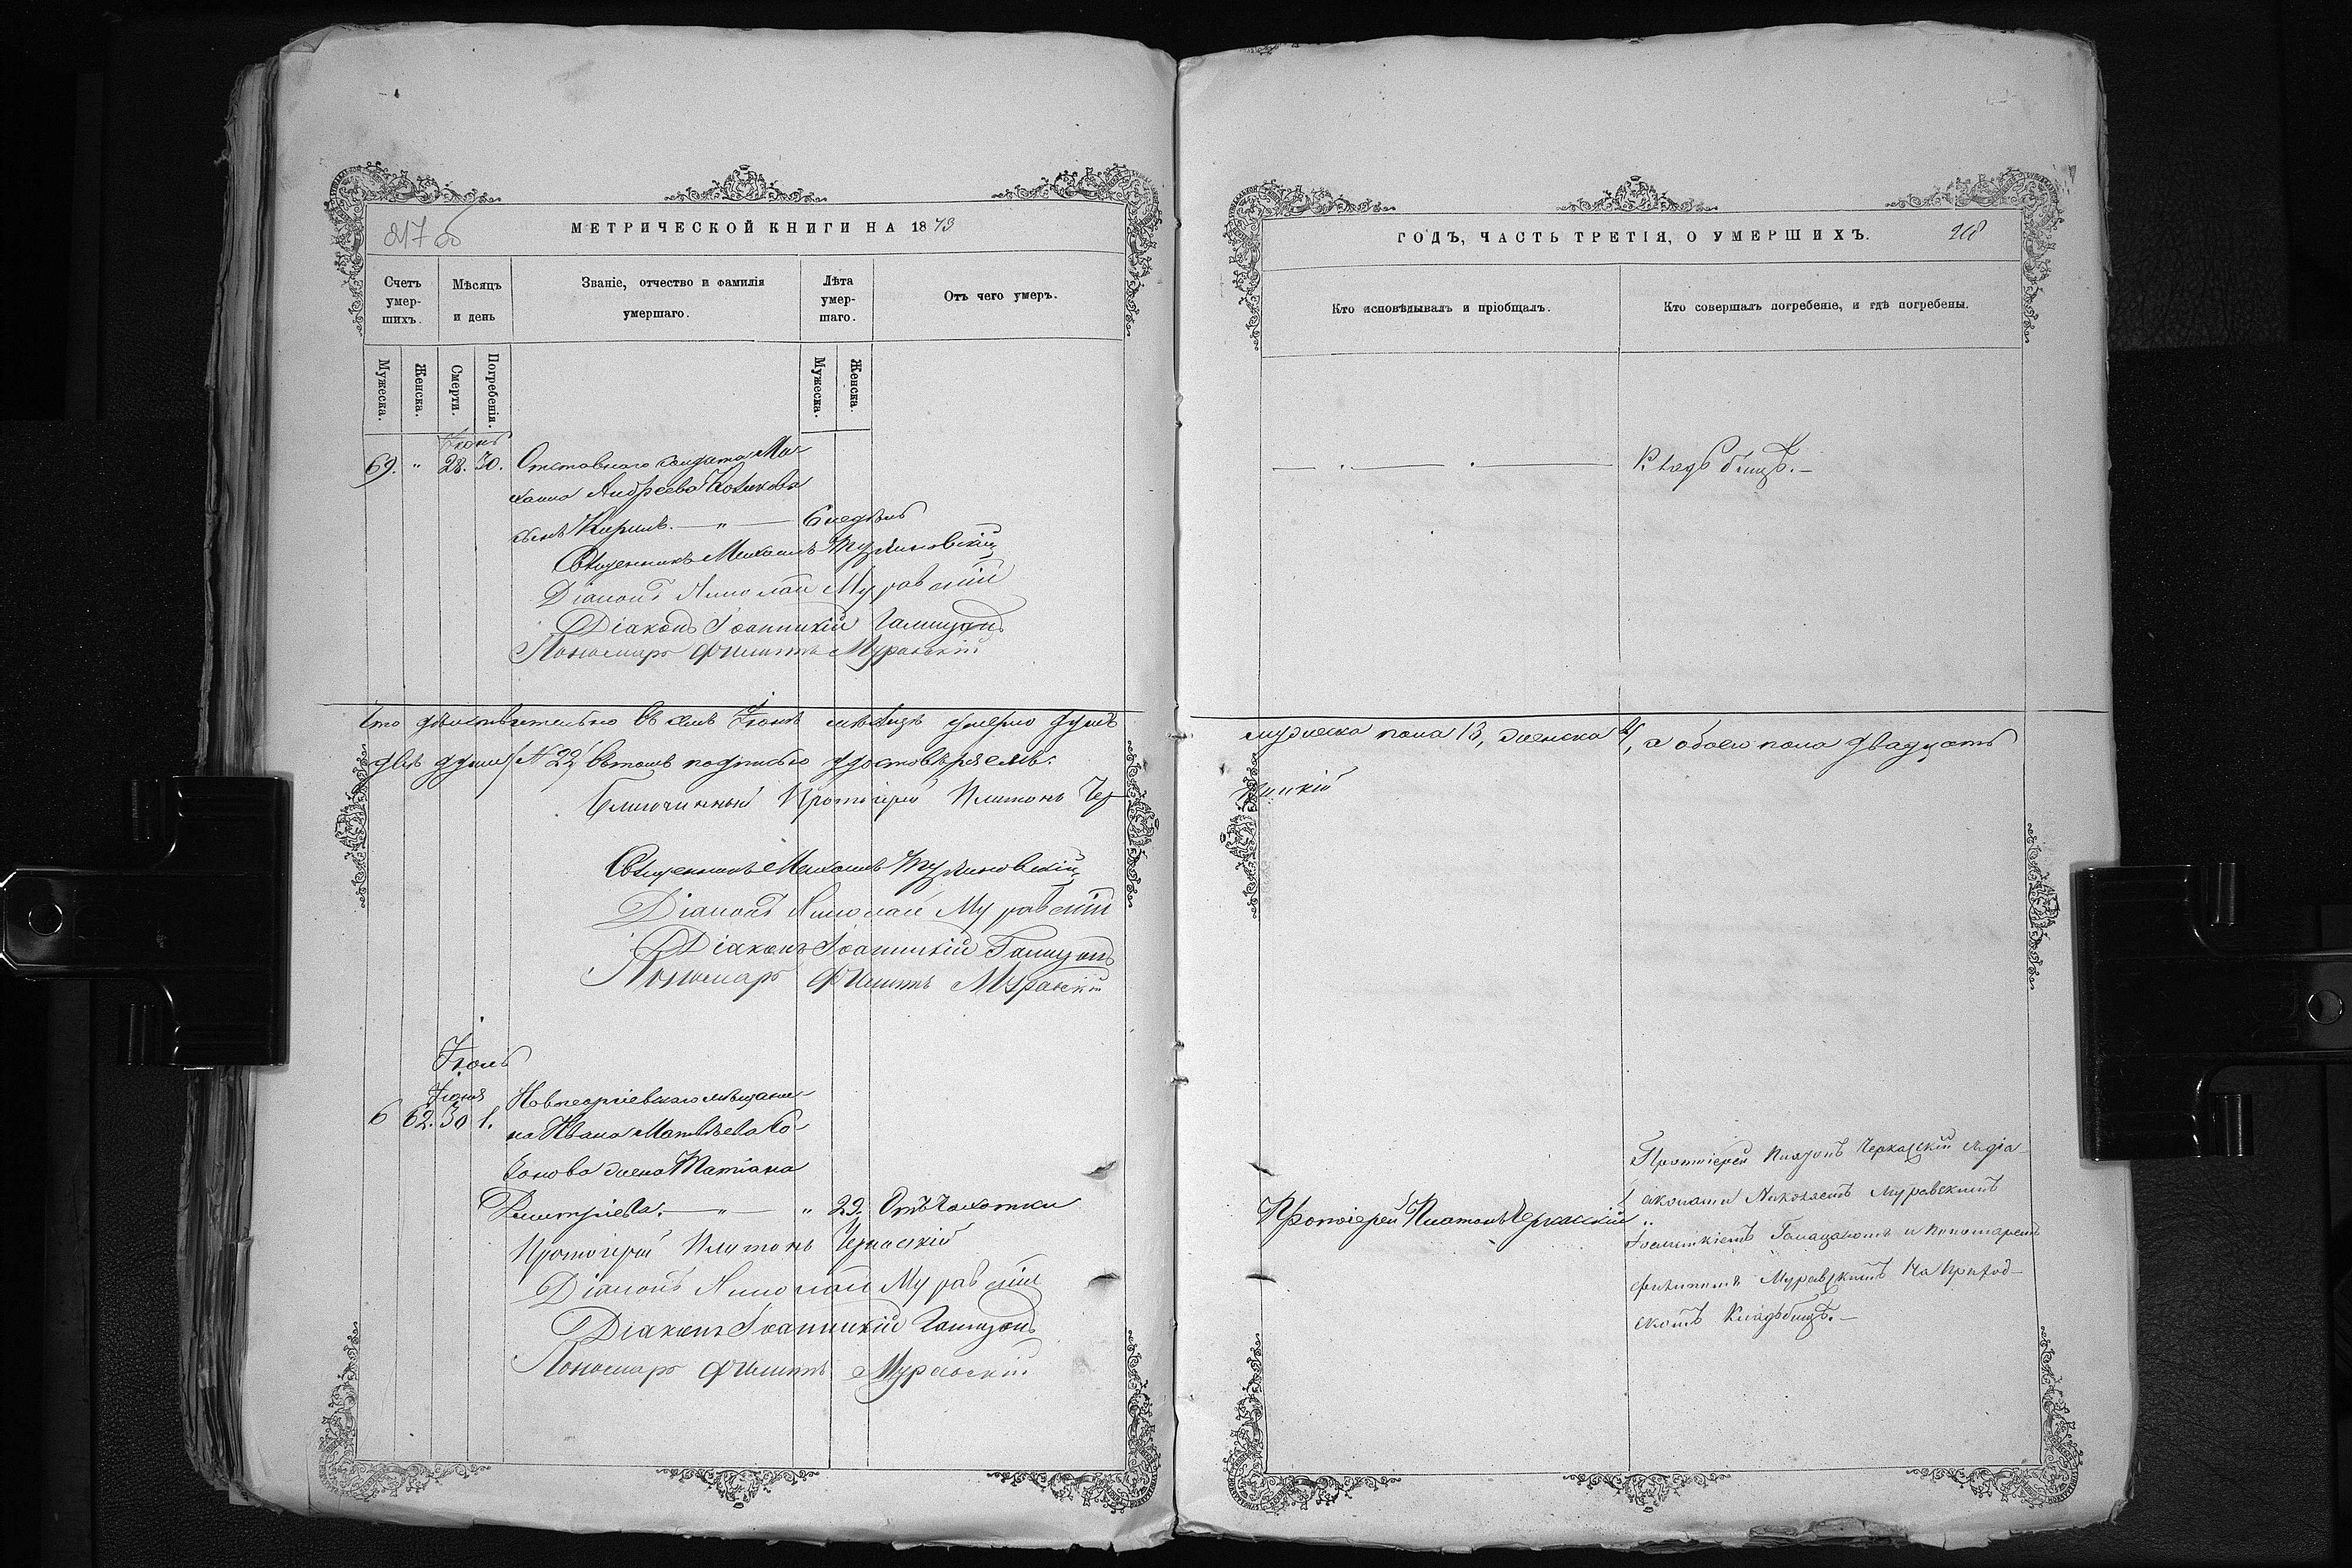 217 об
МЕТРИЧЕСКОЙ КНИГИ НА 1873
Счетъ умер-шихъ.
Мѣсяцъ и день
Званіе, отчество и фамилія умершаго.
Лѣта умер-шаго.
Отъ чего умеръ.
Мужеска.
Женска.
Смерти.
Погребенія.
Мужеска.
Женска.
Іюнь
69. " 28. 30. Отставнаго солдата Ми-
хаила Андреева
сынъ Кирилъ. — " — 6 недѣль
Священникъ Михаилъ
Діаконъ Николай Муравскій
Діаконъ Іоанникій
Пономарь Филиппъ Муравскій
Что дѣйствительно въ семъ Іюнѣ мѣсяцѣ умерло душъ
двѣ души (№ 22) въ томъ подписью удостовѣряемъ.
Благочинный Протоіерей Платонъ Чер-
Священникъ Михаилъ
Діаконъ Николай Муравскій
Діаконъ Іоанникій
Пономарь Филиппъ Муравскій
Іюль
Іюня
62. 30 1. Новогеоргіевскаго мѣщани-
на Ивана Матвѣева
жена Татіана
Димитріева. — " — " 29. Отъ чахотки
Протоіерей Платонъ Черкасскій
Діаконъ Николай Муравскій
Діаконъ Іоанникій
Пономарь Филиппъ Муравскій
ГОДЪ, ЧАСТЬ ТРЕТІЯ, О УМЕРШИХЪ.
218
Кто исповѣдывалъ и пріобщалъ.
Кто совершалъ погребеніе, и гдѣ погребены.
Кладбищѣ.—
мужеска пола 13, женска, а обоего пола двадцать
Протоіерей Платонъ Черкасскій
Протоіерей Платонъ Черкасскій съ діа-
аконами Николаемъ Муравскимъ
Іоанникіемъ и Пономаремъ
Филиппомъ Муравскимъ на приход-
скомъ Кладбищѣ.—